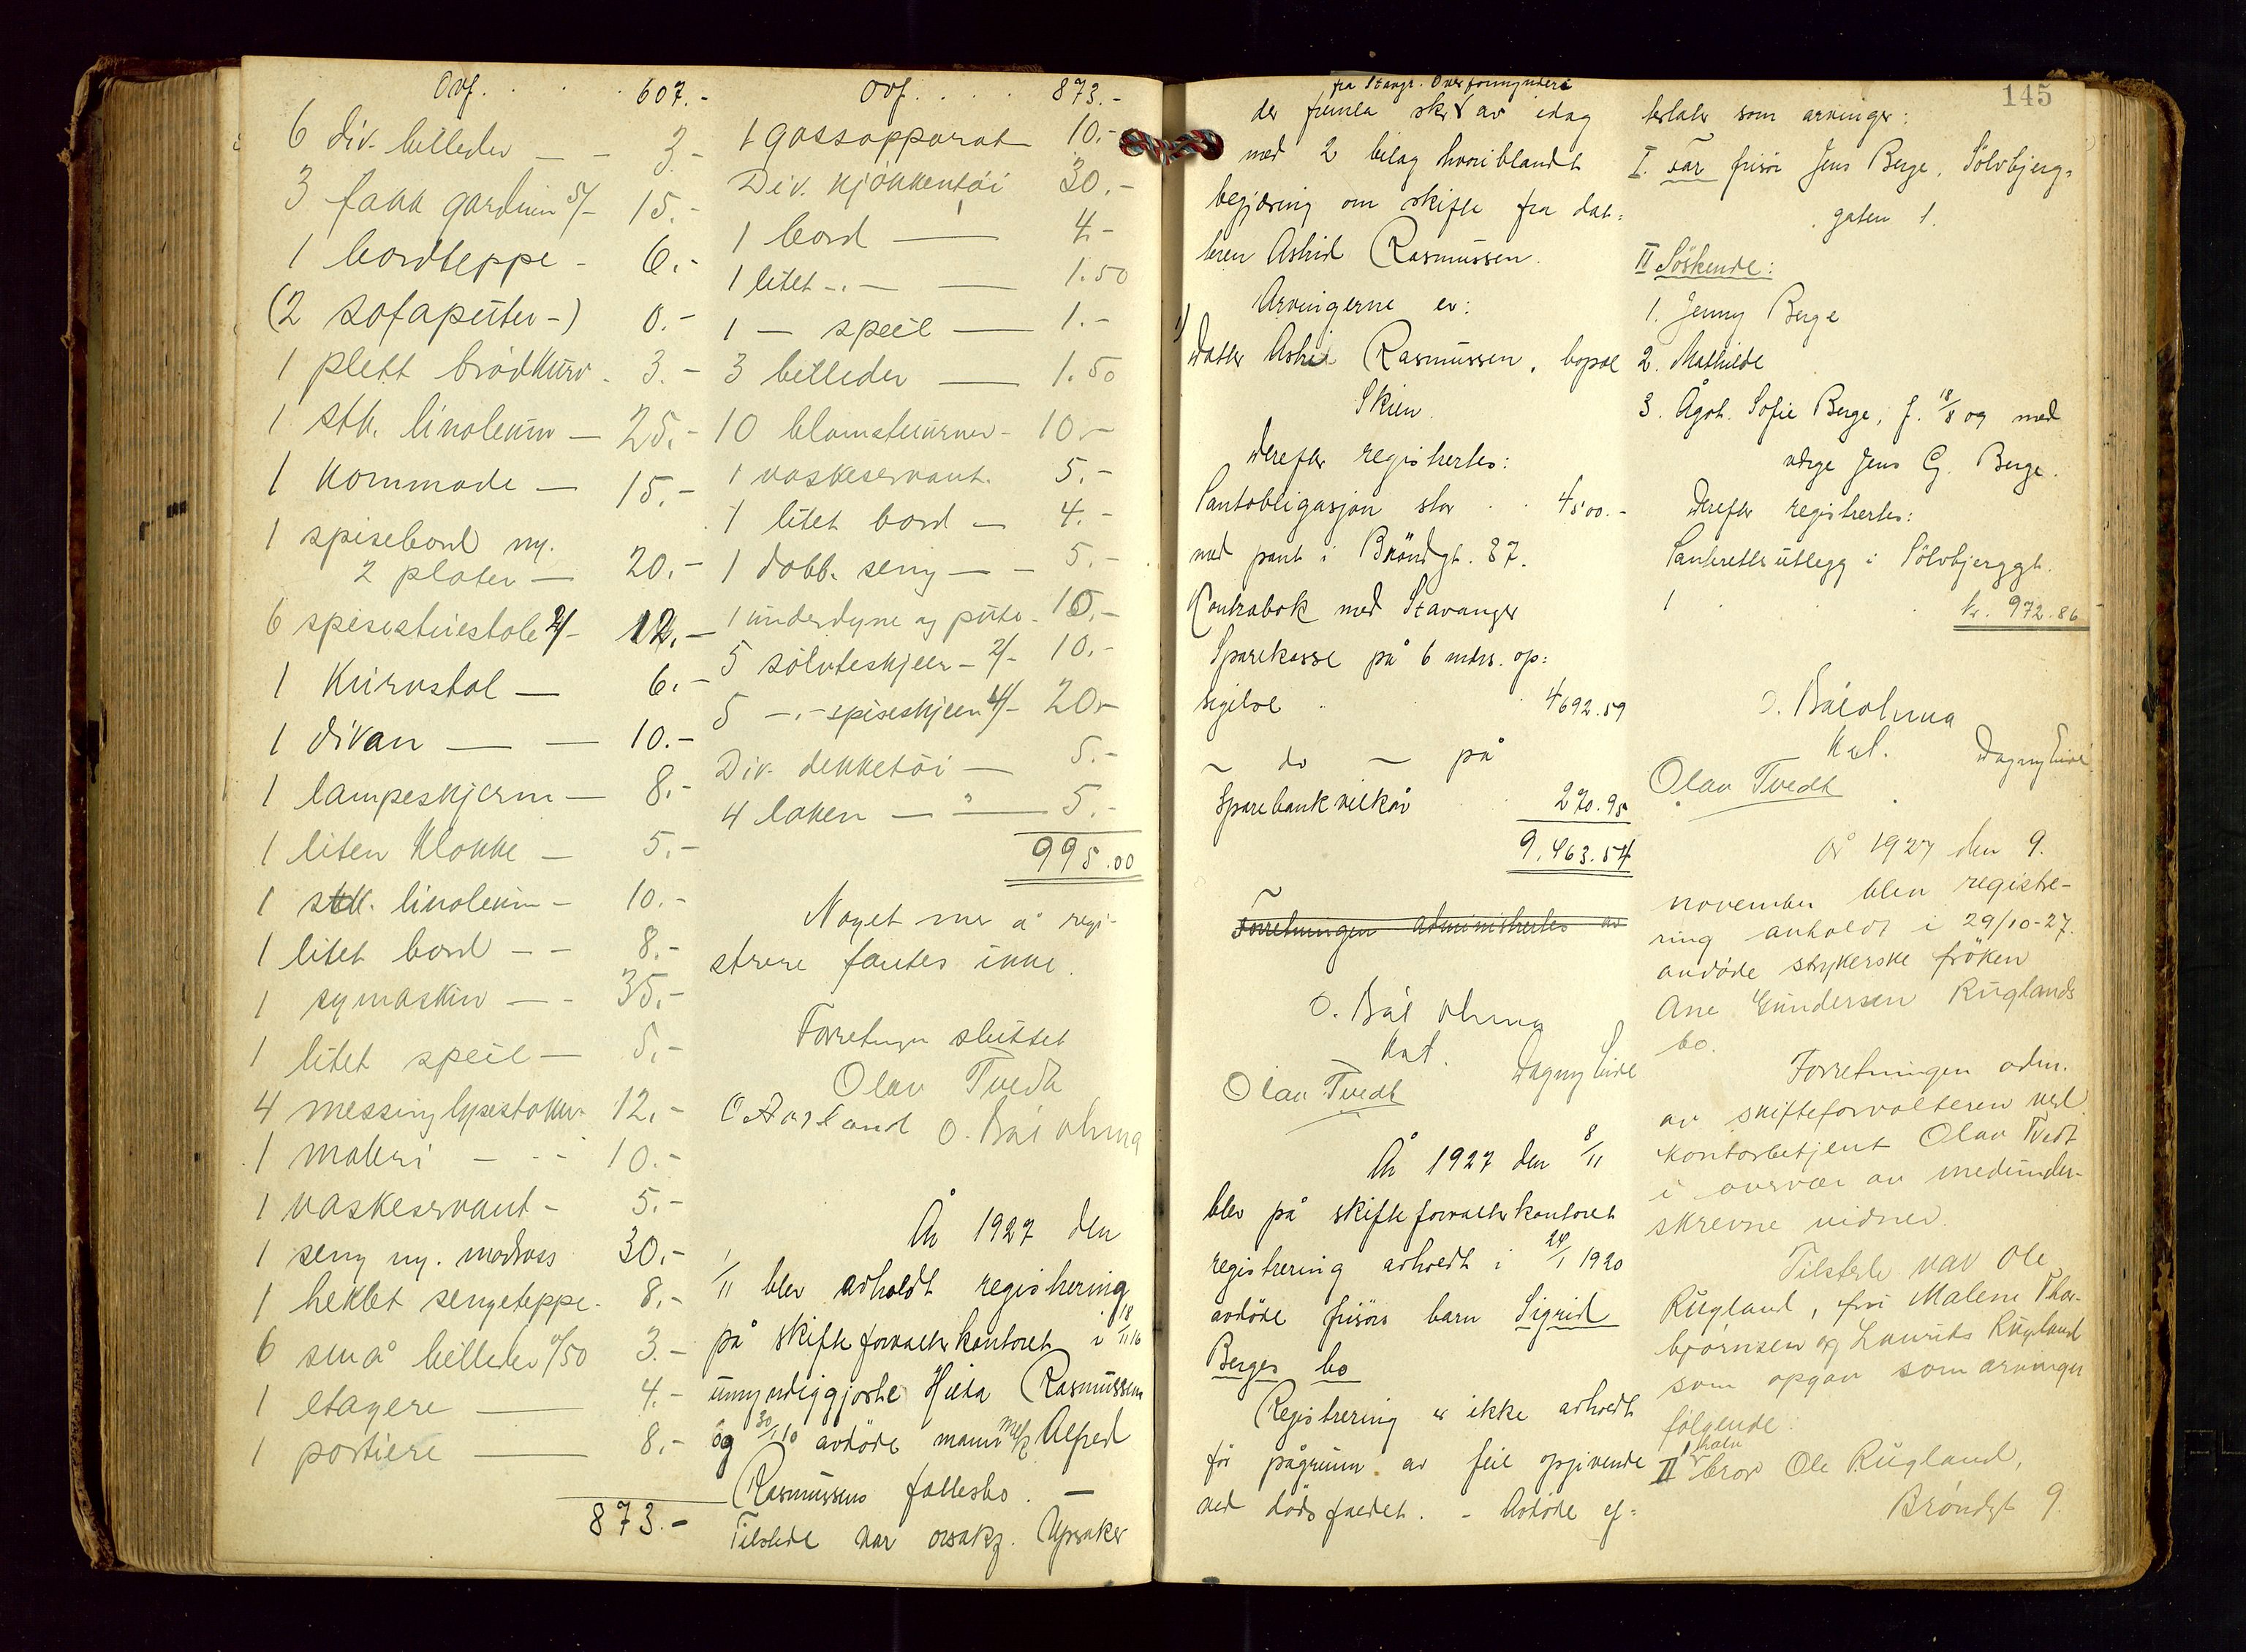 Ovf. . . . 607.-
6 div. billeder — - 3.-
3 fakk gardiner 5/- 15.-
1 bordteppe - 6.-
(2 sofaputer -) 0.-
1 plett brödkurv - 3.-
1 stk. linoleum — 25.-
1 kommode — 15.-
1 spisebord m.
2 plater — 20.-
6 spisestuestole 2/- 12.-
1 kurvstol — 6.-
1 divan — — 10.-
1 lampeskjerm — 8.-
1 liten klokke — 5.-
1 stk. linoleum - 10.-
1 litet bord - - 8.-
1 symaskin — - 35.-
1 litet speil — 5.-
4 messinglysestaker - 12.-
1 maleri - - - 10.-
1 vaskeservant - 5.-
1 seng m. madrass 30.-
1 heklet sengeteppe - 8.-
6 små billeder 0/50 3.-
1 etagere — 4.-
1 portiere — 8.-
873.-
Ovf. . . . 873.-
1 gassapparat 10.-
Div. kjökkentöi 30.-
1 bord — 4.-
1 litet -.- — 1.50
1 — speil — 1.-
3 billeder — 1.50
10 blomsterurner - 10.-
1 vaskeservant. 5.-
1 litet bord — 4.-
1 dobb. seng — - 5.-
1 underdyne og pute - 10.-
5 sölvteskjeer - 2/- 10.-
5 -.- spiseskjeer 4/- 20.-
Div. dekketöi — 5.-
4 laken — " — 5.-
995.00
Noget mer å regi-
strere fantes ikke.
Forretningen sluttet
Olav Tvedt
O Aarland O.
År 1927 den
1/11 blev avholdt registrering
på skifteforvalterkontoret i 18/11 16
umyndiggjorte Rasmussen
og 30/1 10 avdöde mann Alfred
Rasmussens fællesbo. —
Tilstede var orsakf. Upsaker
fra Stavgr. Overformynderi
der fremla skr. av idag
med 2 bilag hvoriblandt
begjæring om skifte fra dat=
teren Astrid Rasmussen.
Arvingerne er:
1) Datter Astrid Rasmussen, bopæl
Skien.
Derefter registrertes:
Pantobligasjon stor . . 4500.-
med pant i Bröndgt. 87.
Kontrabok med Stavanger
Sparekasse på 6 mdrs. op=
sigelse . . . 4692.59
— do — på
Sparebankvilkår . . 270.95
9.463.54
Forretningen administrertes av
O.
Olav Tvedt Dagny Eide
År 1927 den 8/11
blev på skifteforvalterkontoret
registrering avholdt i 24/1 1920
avdöde frisörs barn Sigrid
Berges bo
Registrering er ikke avholdt
för pågrunn av feil opgivende
ved dödsfaldet. - Avdöde ef=
145
terlater som arvinger:
I. Far frisör Jens Berge, Sölvbjerg=
gaten 1.
II Söskende:
1. Jenny Berge
2. Mathilde
3. Ågot Sofie Berge, f. 18/8 09 med
verge Jens G. Berge.
Derefter registrertes:
Panteretts utlegg i Sölvbjerggt.
1 . . . kr. 972.86
O.
Olav Tvedt Dagny Eide
År 1927 den 9.
november blev registre-
ring avholdt i 29/10-27.
avdöde strykerske fröken
Ane Gundersen Ruglands
bo.
Forretningen adm.
av skifteforvalteren ved
kontorbetjent Olav Tvedt
i overvær av medunder-
skrevne vidner.
Tilstede var Ole
Rugland, fru Malene Thor-
björnsen og Laurits Rugland
som opgav som arvinger
fölgende:
halv
II bror Ole Rugland,
Bröndgt 9.